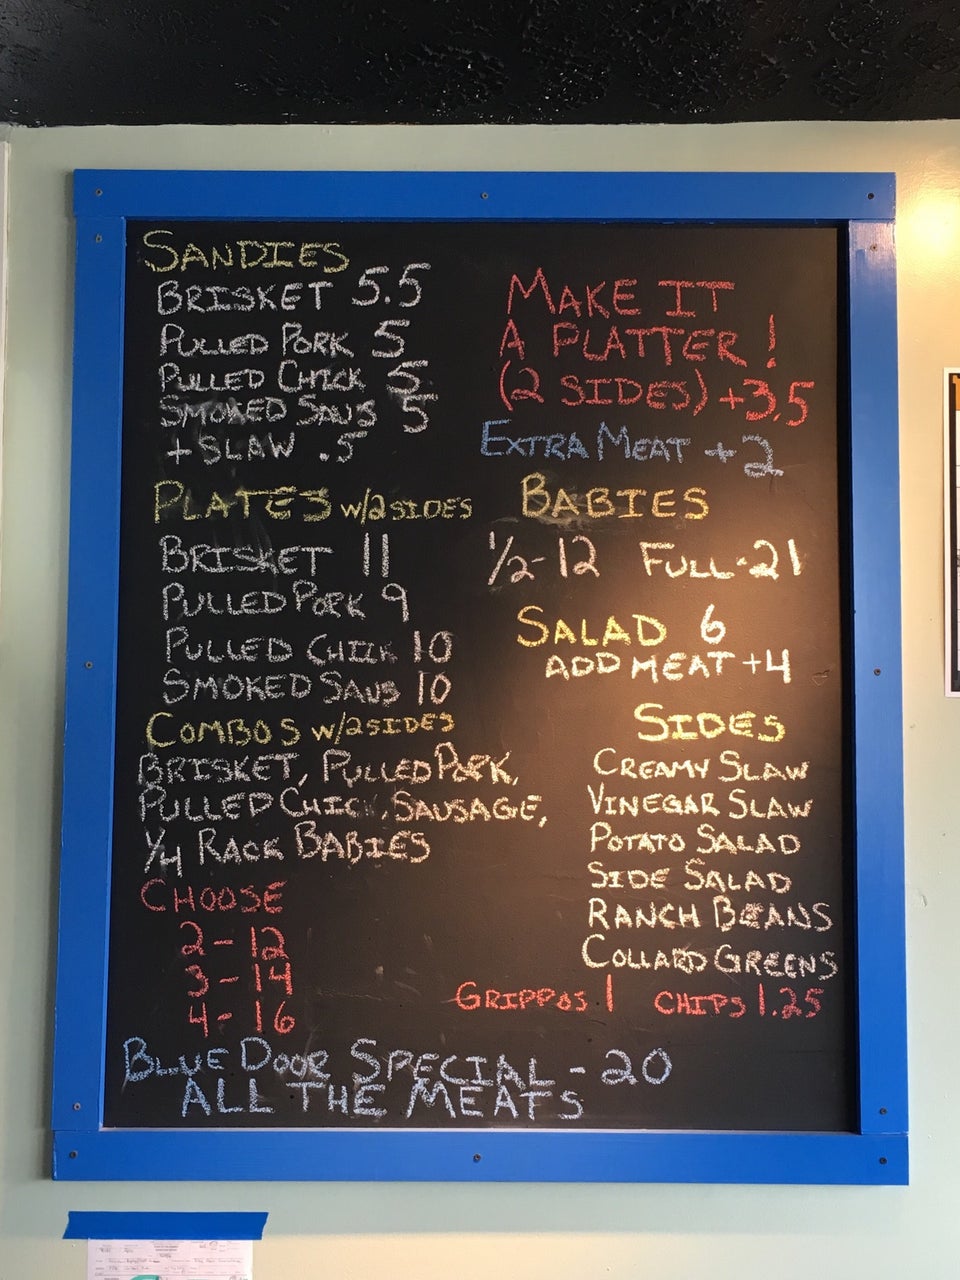 SANDIES
BRISKET 5.5
PULLED PORK 5
PULLED CHICK 5
SMOKED SAUS 5
+ SLAW .5
PLATES W/2 SIDES
BRISKET 11
PULLED PORK 9
PULLED CHICK 10
SMOKED SAUS 10
COMBOS W/2 SIDES
BRISKET, PULLED PORK,
PULLED CHICK, SAUSAGE,
1/4 RACK BABIES
CHOOSE
2 - 12
3 - 14
4 - 16
MAKE IT
A PLATTER!
(2 SIDES) +3.5
EXTRA MEAT +2
BABIES
1/2-12 FULL-21
SALAD 6
ADD MEAT +4
SIDES
CREAMY SLAW
VINEGAR SLAW
POTATO SALAD
SIDE SALAD
RANCH BEANS
COLLARD GREENS
GRIPPOS 1 CHIPS 1.25
BLUE DOOR SPECIAL - 20
ALL THE MEATS